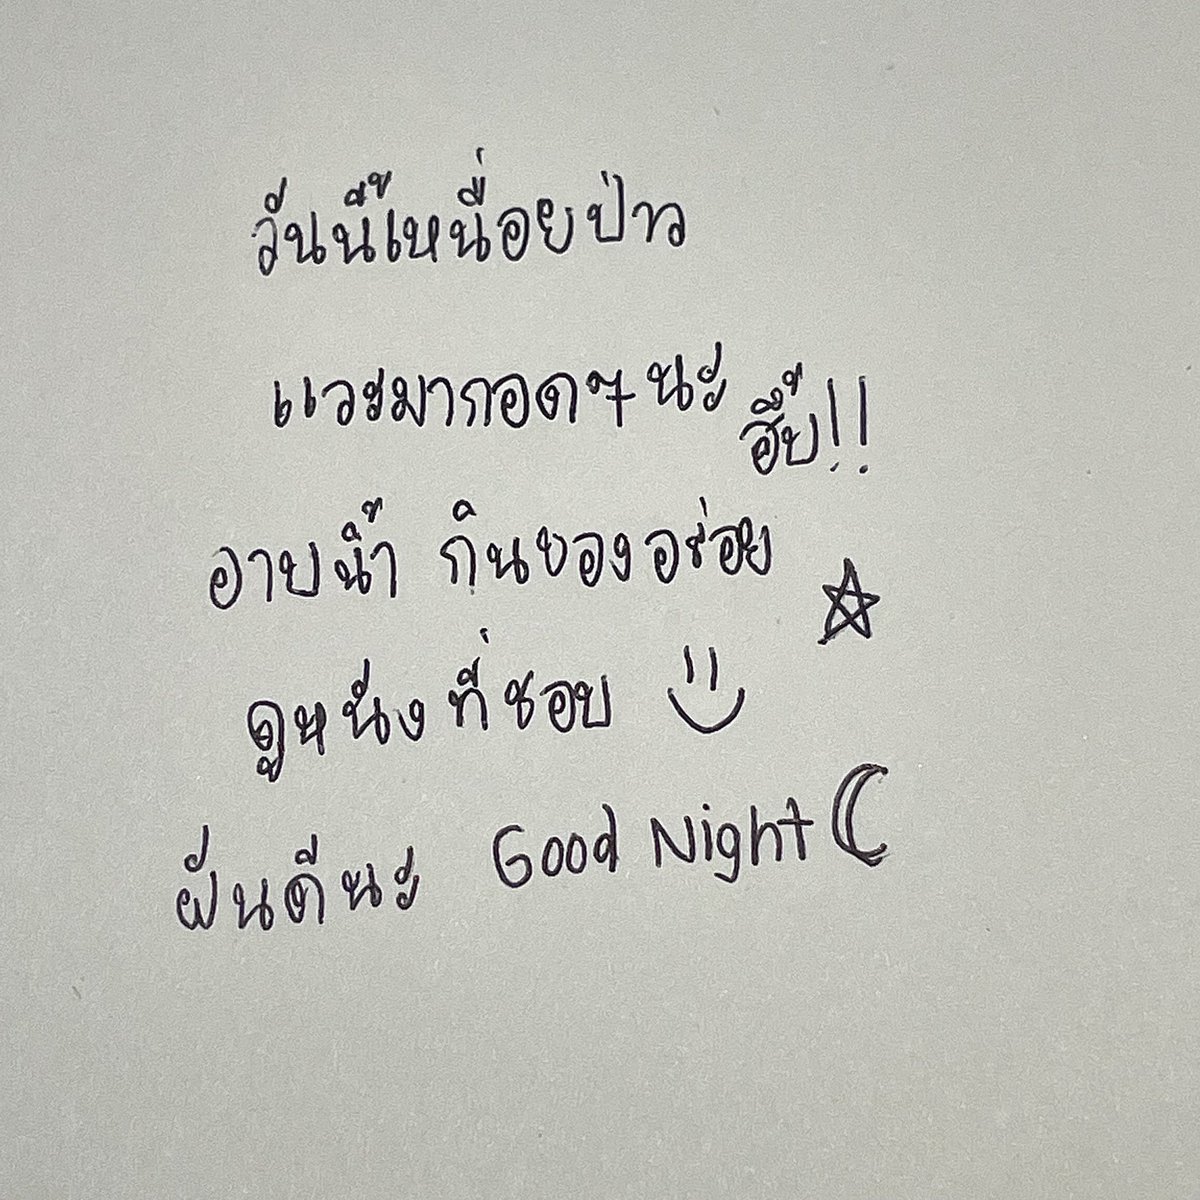 วันนี้เหนื่อยป่าว
แวะมากอดๆนะ ฮึ้บ!!
อาบน้ำ กินของอร่อย
ดูหนังที่ชอบ
ฝันดีนะ Good Night